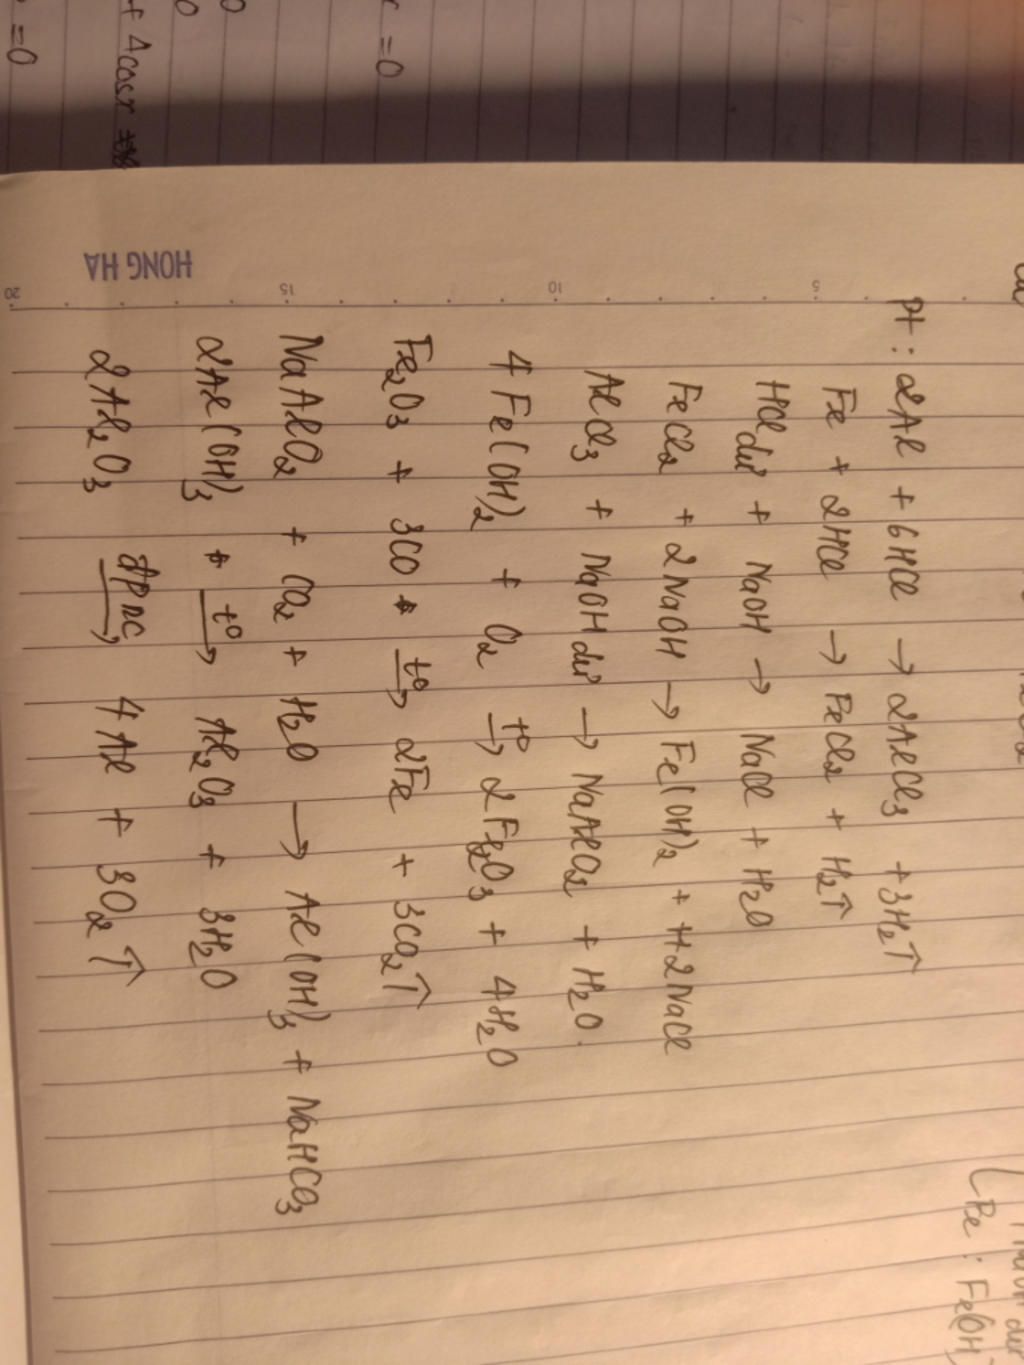 Pt : 2Al + 6HCl → 2AlCl3 + 3H2↑
Fe + 2HCl → FeCl2 + H2↑
HCl dư + NaOH → NaCl + H2O
FeCl2 + 2NaOH → Fe(OH)2 + H2NaCl
AlCl3 + NaOH dư → NaAlO2 + H2O.
4Fe(OH)2 + O2 t° → 2Fe2O3 + 4H2O
Fe2O3 + 3CO t° → 2Fe + 3CO2↑
NaAlO2 + CO2 + H2O → Al(OH)3 + NaHCO3
2Al(OH)3 t° → Al2O3 + 3H2O
2Al2O3 đpnc → 4Al + 3O2↑
5
10
15
20
HONG HA
Pe : Fe(OH)
+ 4cosx
=0
=0
0
0